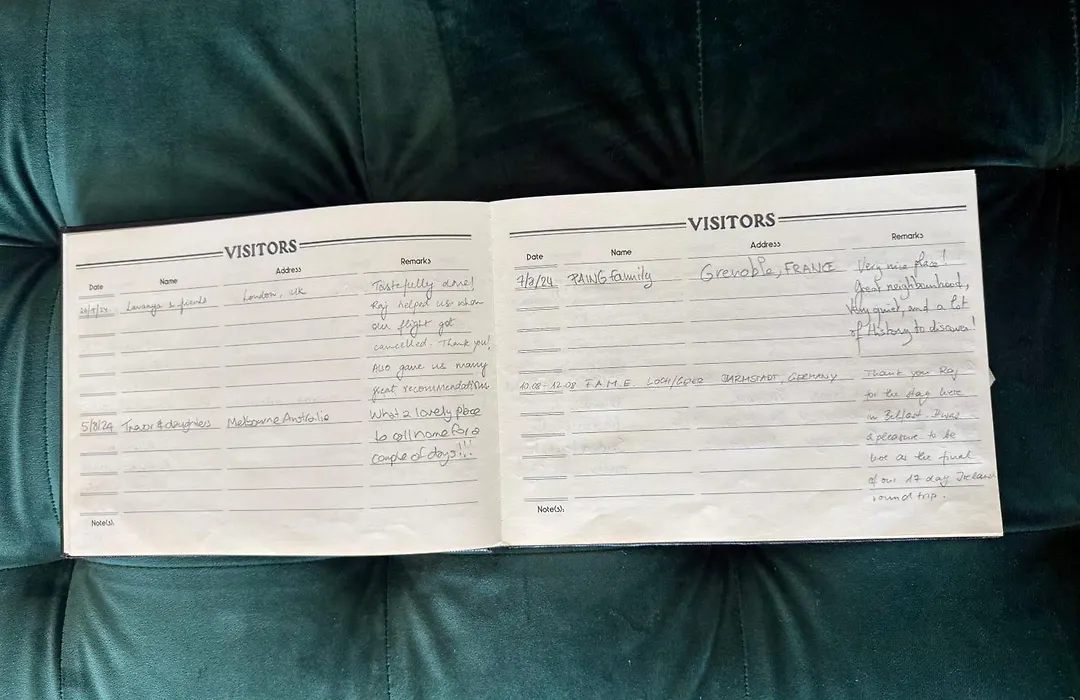 VISITORS
Date Name Address Remarks
Lavanya & friends London, UK Tastefully done!
Raj helped us when
our flight got
cancelled. Thank you!
Also gave us many
great recommendations
5/8/24 Trevor & daughters Melbourne Australia What a lovely place
to call home for a
couple of days!!!
Note(s):
VISITORS
Date Name Address Remarks
7/8/24 PAING family Grenoble, FRANCE Very nice place!
Great neighbourhood,
Very quiet, and a lot
of History to discover!
10.08-12.08 F.A.M.E. DARMSTADT, GERMANY Thank you Raj
for the stay here
in Belfast. It was
a pleasure to be
here as the final
of our 17 day Ireland
round trip.
Note(s):